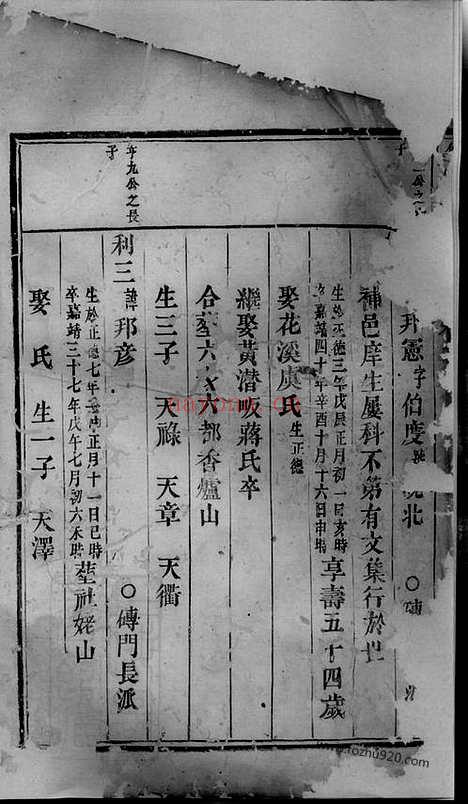 邦憲字伯度號 北 〇磚
補邑庠生屢科不第有文集行於世
生於正德三年戊辰正月初一日亥時
卒嘉靖四十年辛酉十月十六日申時 享壽五十四歲
娶花溪虞氏 生正德
繼娶黃潜吹蔣氏卒
合墓六 六都香爐山
生三子 天祿 天章 天衢
年九公之長
子
利三 諱邦彦 〇磚門長派
生於正德七年 正月十一日巳時
卒嘉靖三十七年戊午七月初六未時 塟社姥山
娶 氏 生一子 天澤
nayona.cn
www.rozhu920.com